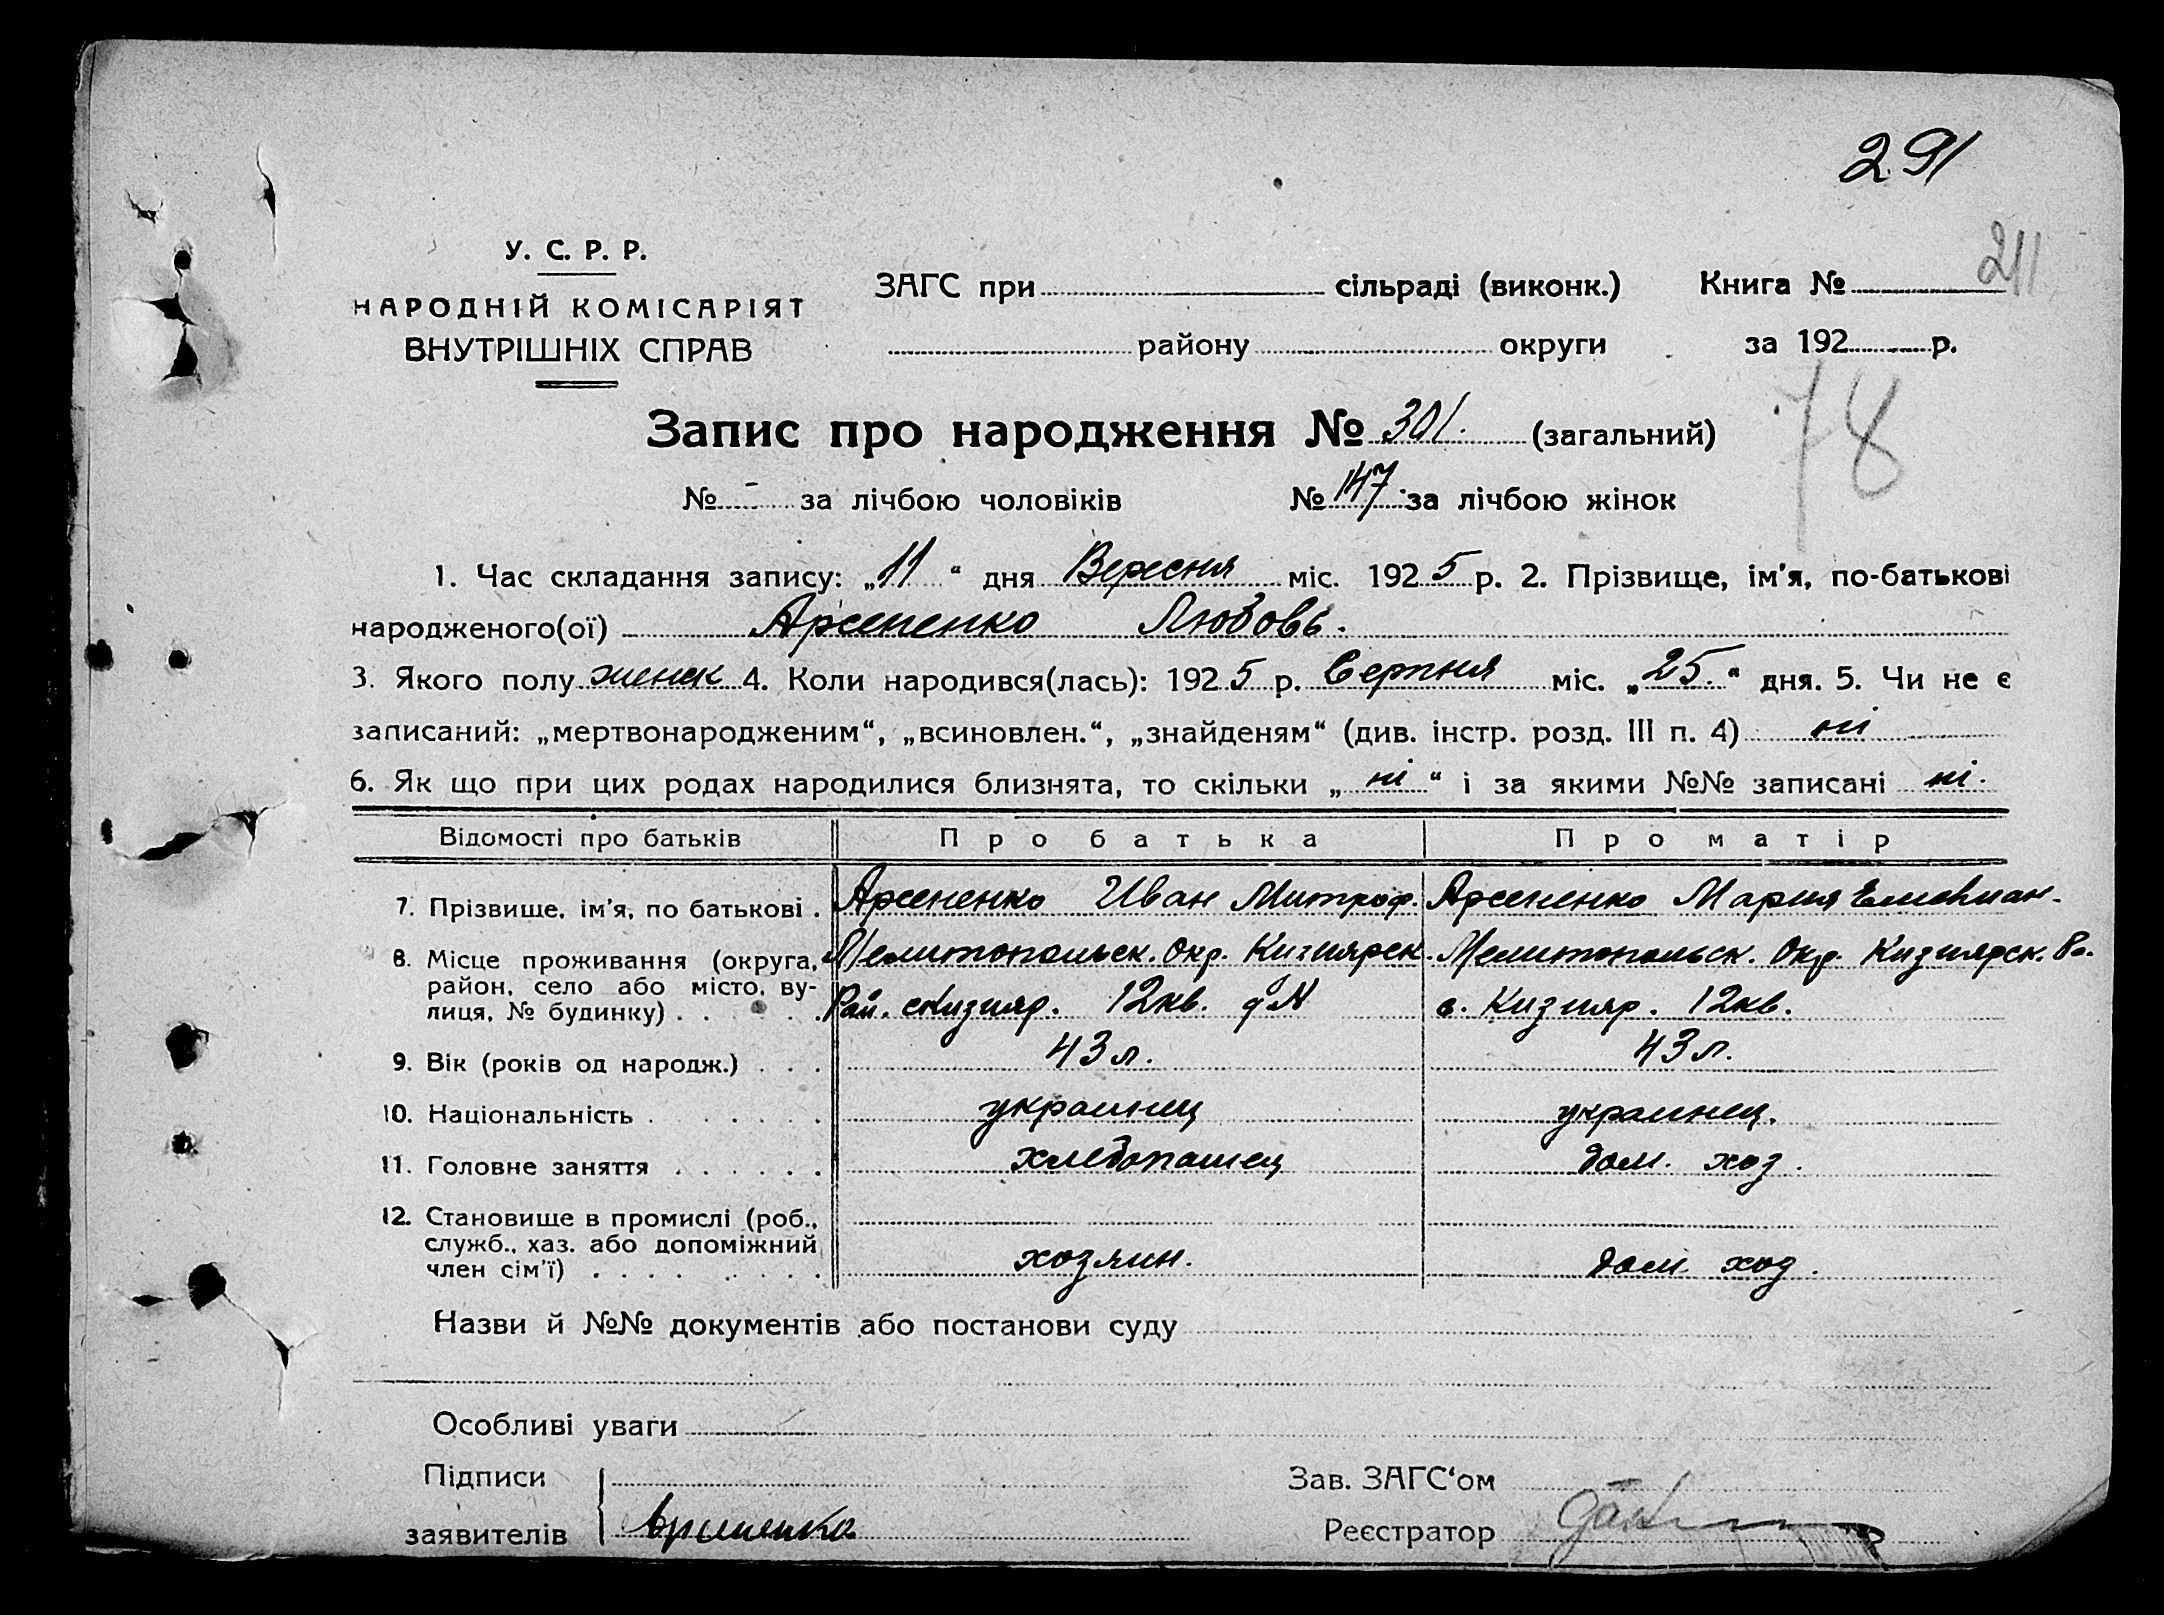 291
211
У. С. Р. Р.
НАРОДНІЙ КОМІСАРІЯТ
ВНУТРІШНІХ СПРАВ
ЗАГС при сільраді (виконк.) Книга №
району округи за 192 р.
78
Запис про народження № 301. (загальний)
№ - за лічбою чоловіків № 147 за лічбою жінок
1. Час складання запису: „11“ дня Вересня міс. 1925 р. 2. Прізвище, ім'я, по-батькові
народженого(ої) Арсененко Любовь.
3. Якого полу женск 4. Коли народився(лась): 1925 р. Серпня міс. „25.“ дня. 5. Чи не є
записаний: „мертвонародженим“, „всиновлен.“, „знайденям“ (див. інстр. розд. III п. 4) ні
6. Як що при цих родах народилися близнята, то скільки „ні“ і за якими №№ записані ні.
Відомості про батьків Про батька Про матір
7. Прізвище, ім'я, по батькові . Арсененко Иван Митроф. Арсененко Мария Емельян.
8. Місце проживання (округа, Мелитопольск. Окр. Кизиярск. Мелитопольск. Окр. Кизиярск. Ра.
район, село або місто, ву-
лиця, № будинку) . . . . . Рай. с Кизияр. 12кв. д N с. Кизияр. 12кв.
9. Вік (років од народж.) . . . 43 л. 43 л.
10. Національність . . . . . . украинец украинец.
11. Головне заняття . . . . . . хлебопашец дом. хоз.
12. Становище в промислі (роб.,
служб., хаз. або допоміжний
член сім'ї) . . . . . . . . хозяин. дом хоз.
Назви й №№ документів або постанови суду
Особливі уваги
Підписи Зав. ЗАГС‘ом
заявителів Арсненко Реєстратор